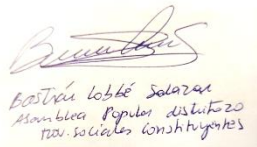 Bastián Labbé Salazar
Asamblea Popular distrito 20
Mov. sociales constituyentes